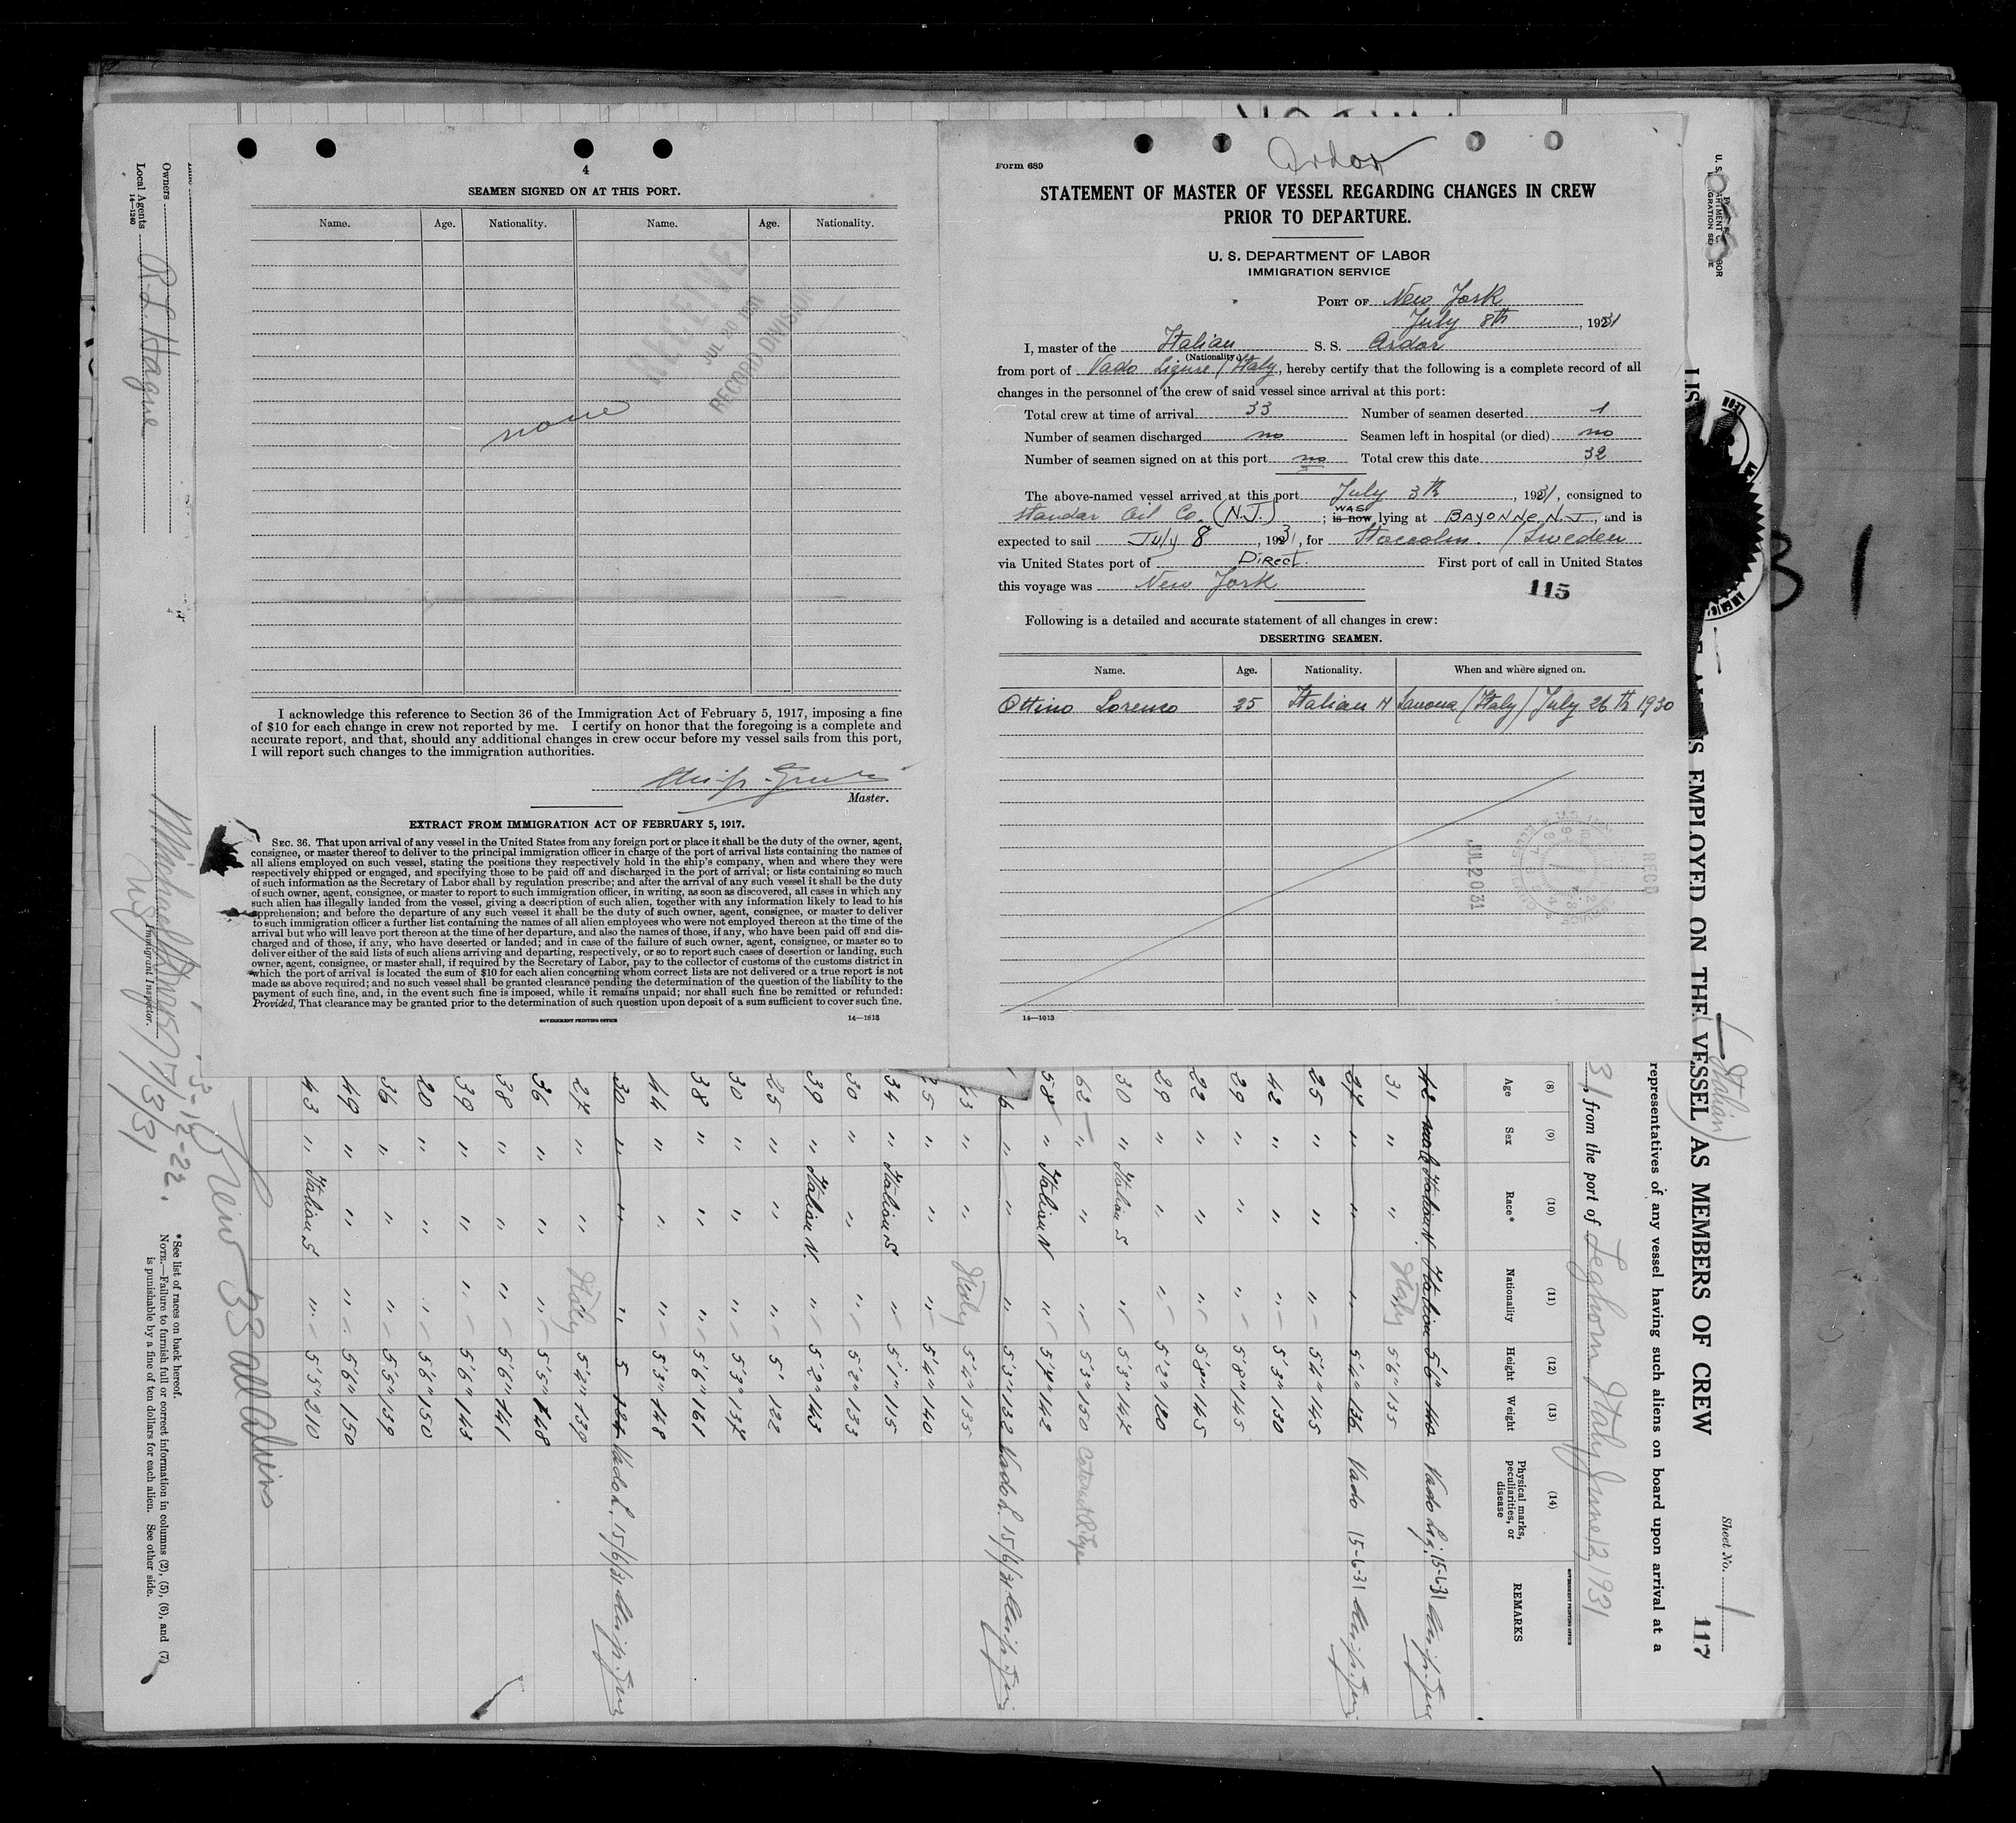 4
SEAMEN SIGNED ON AT THIS PORT.
Name. Age. Nationality. Name. Age. Nationality.
RECEIVED
JUL 20 1931
RECORD DIVISION
none
I acknowledge this reference to Section 36 of the Immigration Act of February 5, 1917, imposing a fine
of $10 for each change in crew not reported by me. I certify on honor that the foregoing is a complete and
accurate report, and that, should any additional changes in crew occur before my vessel sails from this port,
I will report such changes to the immigration authorities.
Master.
EXTRACT FROM IMMIGRATION ACT OF FEBRUARY 5, 1917.
SEC. 36. That upon arrival of any vessel in the United States from any foreign port or place it shall be the duty of the owner, agent,
consignee, or master thereof to deliver to the principal immigration officer in charge of the port of arrival lists containing the names of
all aliens employed on such vessel, stating the positions they respectively hold in the ship's company, when and where they were
respectively shipped or engaged, and specifying those to be paid off and discharged in the port of arrival; or lists containing so much
of such information as the Secretary of Labor shall by regulation prescribe; and after the arrival of any such vessel it shall be the duty
of such owner, agent, consignee, or master to report to such immigration officer, in writing, as soon as discovered, all cases in which any
such alien has illegally landed from the vessel, giving a description of such alien, together with any information likely to lead to his
apprehension; and before the departure of any such vessel it shall be the duty of such owner, agent, consignee, or master to deliver
to such immigration officer a further list containing the names of all alien employees who were not employed thereon at the time of the
arrival but who will leave port thereon at the time of her departure, and also the names of those, if any, who have been paid off and dis-
charged and of those, if any, who have deserted or landed; and in case of the failure of such owner, agent, consignee, or master so to
deliver either of the said lists of such aliens arriving and departing, respectively, or so to report such cases of desertion or landing, such
owner, agent, consignee, or master shall, if required by the Secretary of Labor, pay to the collector of customs of the customs district in
which the port of arrival is located the sum of $10 for each alien concerning whom correct lists are not delivered or a true report is not
made as above required; and no such vessel shall be granted clearance pending the determination of the question of the liability to the
payment of such fine, and, in the event such fine is imposed, while it remains unpaid; nor shall such fine be remitted or refunded:
Provided, That clearance may be granted prior to the determination of such question upon deposit of a sum sufficient to cover such fine.
GOVERNMENT PRINTING OFFICE 14—1613
Ardor
Form 689
STATEMENT OF MASTER OF VESSEL REGARDING CHANGES IN CREW
PRIOR TO DEPARTURE.
U. S. DEPARTMENT OF LABOR
IMMIGRATION SERVICE
PORT OF New York
July 8th, 1931
I, master of the Italian S. S. Ardor
(Nationality.)
from port of Vado Ligure / Italy, hereby certify that the following is a complete record of all
changes in the personnel of the crew of said vessel since arrival at this port:
Total crew at time of arrival 33 Number of seamen deserted 1
Number of seamen discharged no Seamen left in hospital (or died) no
Number of seamen signed on at this port no Total crew this date 32
The above-named vessel arrived at this port July 3th, 1931, consigned to
Standar Oil Co. (N.J.); is now WAS lying at BAYONNE N.J., and is
expected to sail July 8, 1931, for Stoccolm. / Sweden
via United States port of Direct. First port of call in United States
this voyage was New York
115
Following is a detailed and accurate statement of all changes in crew:
DESERTING SEAMEN.
Name. Age. Nationality. When and where signed on.
Ottino Lorenzo 25 Italian N Savona / Italy / July 26th 1930
JUL 20 31
REC'D
14—1613
Owners
Local Agents R. L. Hague
14—1240
Immigrant Inspector.
7/3/31
3-12-22.
Crew 33 all aliens
*See list of races on back hereof.
NOTE.—Failure to furnish full or correct information in columns (2), (5), (6), and (7)
is punishable by a fine of ten dollars for each alien. See other side.
Sheet No. 1
117
(Italian)
S EMPLOYED ON THE VESSEL AS MEMBERS OF CREW
representatives of any vessel having such aliens on board upon arrival at a
31, from the port of Leghorn Italy June 12, 1931
GOVERNMENT PRINTING OFFICE
(8) (9) (10) (11) (12) (13) (14)
Age Sex Race* Nationality Height Weight Physical marks, peculiarities, or disease REMARKS
42 male Italian N. Italian 5'6" 140 Vado Lig. 15-6-31
31 " " Italy 5'6" 155
37 " " " 5'4" 136 Vado 15-6-31
25 " " " 5'4" 145
42 " " " 5'3" 130
29 " " " 5'8" 145
22 " " " 5'8" 145
29 " " " 5'2" 120
30 " Italian S " 5'3" 147
62 " " " 5'3" 150 Cataract R. Eye
58 " Italian N " 5'7" 142
" " " 5'3" 132 Vado L. 15/6/31
43 " " Italy 5'4" 135
25 " " " 5'4" 140
34 " Italian S " 5'1" 115
30 " " " 5'2" 133
39 " Italian N. " 5'2" 143
25 " " " 5' 122
30 " " " 5'3" 137
38 " " " 5'6" 161
44 " " " 5'3" 148
30 " " " 5 124 Vado L. 15/6/31
27 " " Italy 5'4" 139
36 " " " 5'5" 148
38 " " " 5'6" 141
39 " " " 5'6" 143
20 " " " 5'6" 150
36 " " " 5'5" 139
49 " " " 5'6" 150
43 " Italian S " 5'5" 210
31